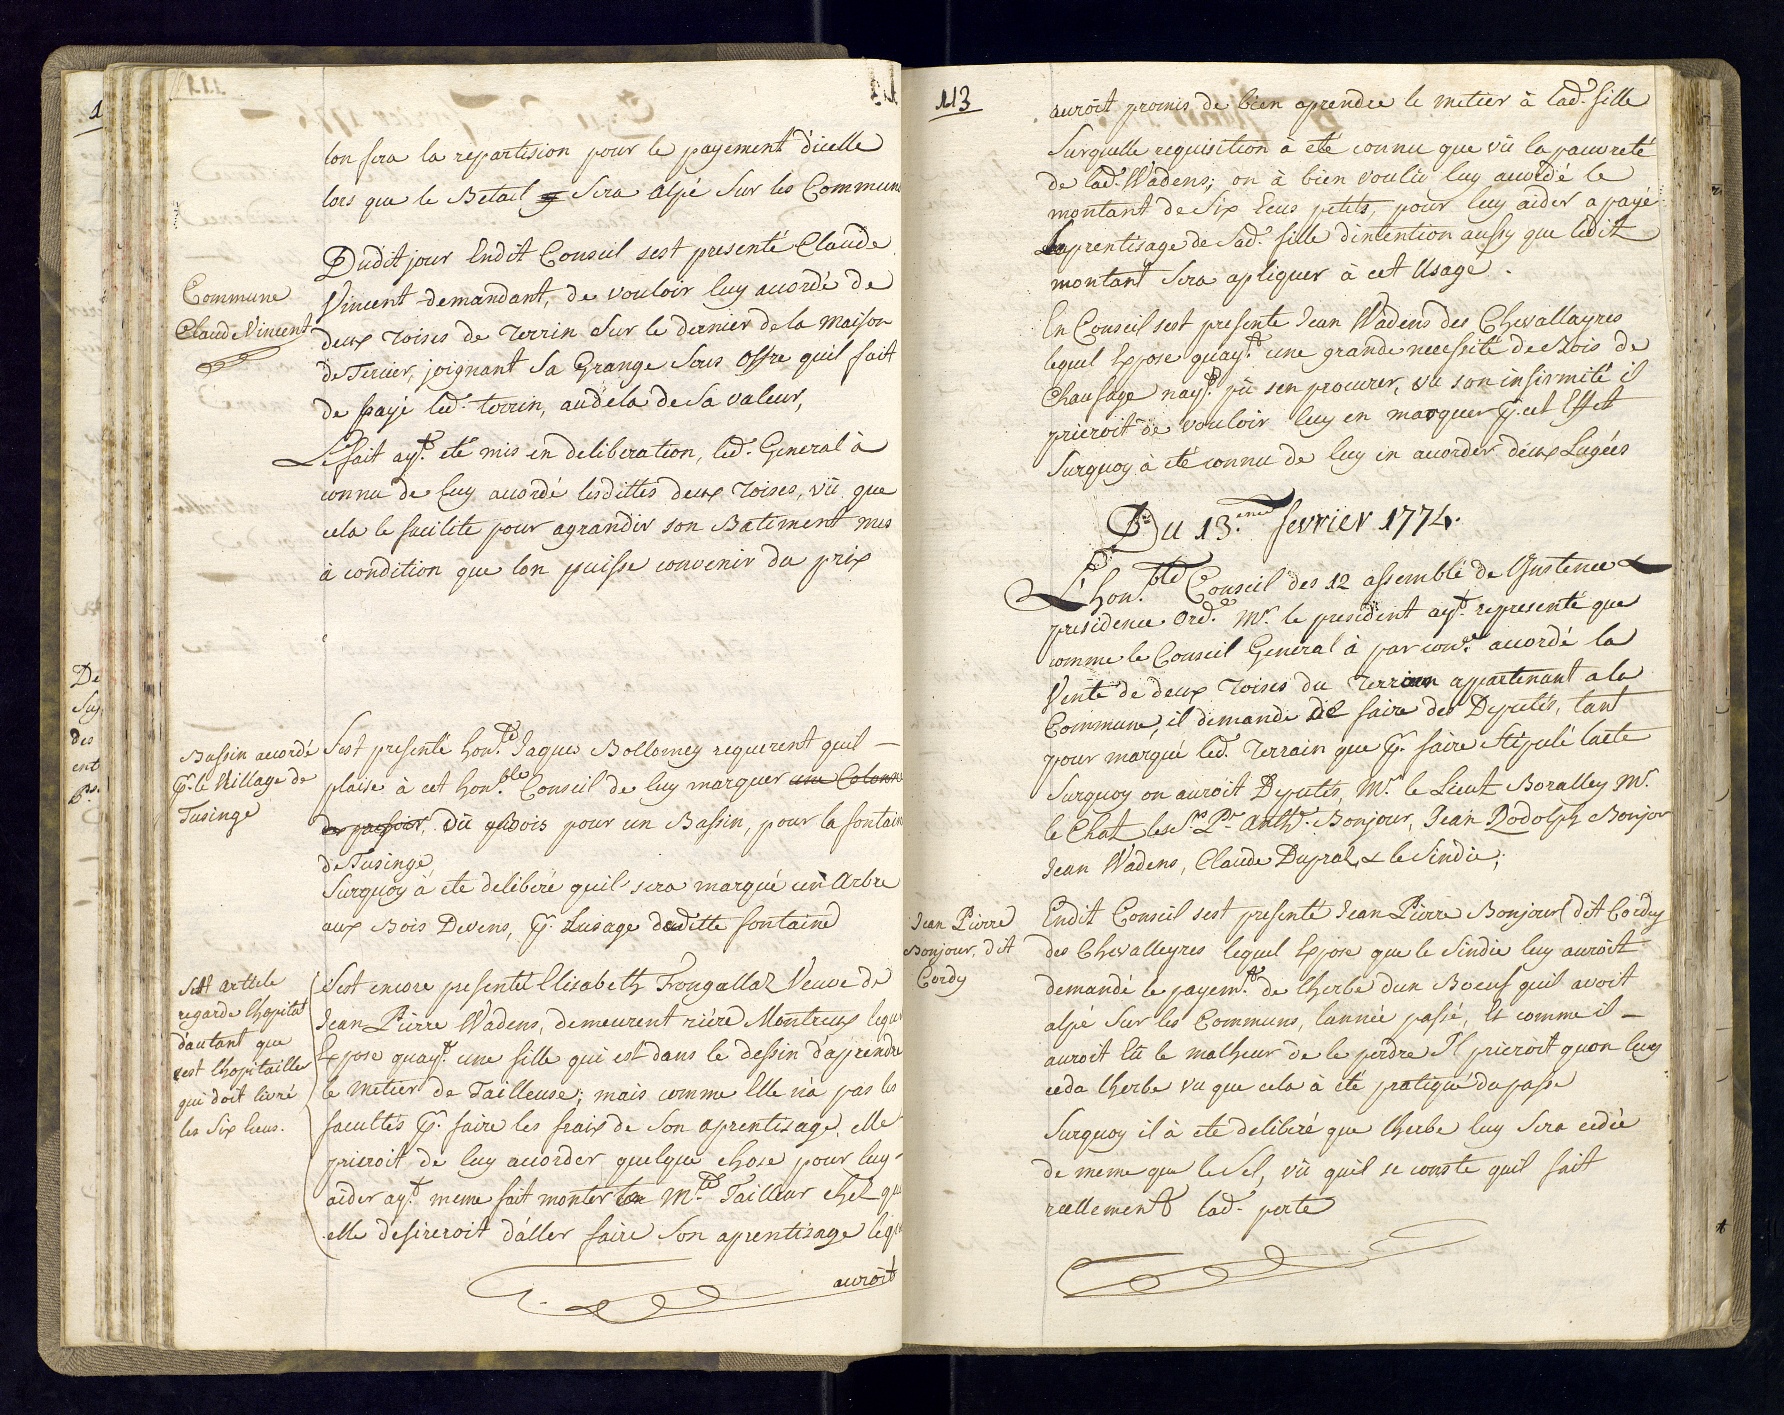 lon fera la repartision pour le payement d'icelle
lors que le Betail Sera Alpé Sur les Communs
Dudit jour Endit Conseil sest presenté Claude
Commune
Claude Vincent
Vincent demandant, de vouloir luy acordé de
deux Toises de Terrin Sur le dernier de la Maison
de Ferrier, joignant Sa Grange Sous Offre quil fait
de payé led. terrin, audela de Sa valeur,
Le fait ayt. eté mis en deliberation, led. General à
connu de luy acordé lesdittes deux Toises, vû que
cela le facilite pour agrandir son Batiment mes
à condition que lon puisse convenir du prix
Bassin acordé
pr. le Village de
Tusinge
Sest presenté honte. Jaques Bollomey requerent quil
plaise à cet honble. Conseil de luy marquer une Colonne
de pressoir, Du Bois pour un Bassin, pour la fontaine
de Tusinge
Surquoy à ete deliberé quil sera marqué un Arbre
aux Bois Devens, pr. Lusage de ditte fontaine
Sett article
regarde lhopital
d'autant que
cest lhopitailler
qui doit livré
les Six Ecus.
Sest encore presenteé Elisabeth Frongallaz Veuve de
Jean Pierre Wadens, demeurent riére Montreux leque
Expose quayt. une fille qui est dans le dessin d'aprendre
le Metier de Tailleuse; mais comme Elle n'a pas les
facultés pr. faire les fraix de Son aprentisage, elle
prieroit de luy accorder quelque chose pour luy
aider ayt. meme fait monter le Mtre. Tailleur chez qui
elle desireroit d'aller faire Son aprentisage leque
auroit
113
auroit promis de bien aprendre le metier à lad. fille
Surquelle requisition à eté connu que vû la pauvreté
de lad. Wadens; on à bien voulû luy acordé le
montant de Six Ecus petits, pour luy aider a payé
Laprentisage de Sad. fille dintention aussy que ledit
montant Sera apliquer à cet Usage.
En Conseil sest presenté Jean Wadens des Chevallayres
lequel Expose quayt. une grande necessité de Bois de
Chaufage nayt. pû sen procurer, vu son infirmité il
prieroit de vouloir luy en marquer pr. cet Effet
Surquoy à eté connu de luy en accorder deux Lugées
Du 13.eme fevrier 1774.
L'honble. Conseil des 12 assemblé de Exsistence &
presidence Ordre. Mr. le president ayt. representé que
comme le Conseil General à par conre. acordé la
Vente de deux Toises du Terrin appartenant a la
Commune, il demande de faire des Deputés, tant
pour marqué led. Terrain que pr. faire Stipulé lacte
Surquoy on auroit Deputés, Mr. le Lieut Boralley Mr.
le Chat. les Srs. Pr. Anthe. Bonjour, Jean Rodolph Bonjor
Jean Wadens, Claude Dupraz, & le Sindic;
Jean Pierre
Bonjour, dit
Cordey
Endit Conseil sest presenté Jean Pierre Bonjour dit Cordey
des Chevalleyres lequel Expose que le Sindic luy auroit
demandé le payemt. de lherbe dun Boeuf quil avoit
alpé Sur les Communs, lannée passé, Et comme il
auroit Eû le malheur de le perdre Il prieroit quon luy
ceda lherbe vu que cela à eté pratiqué du passé
Surquoy il à ete deliberé que lherbe luy Sera cedée
de meme que le Sel, vû quil se conste quil fait
reellement lad. perte